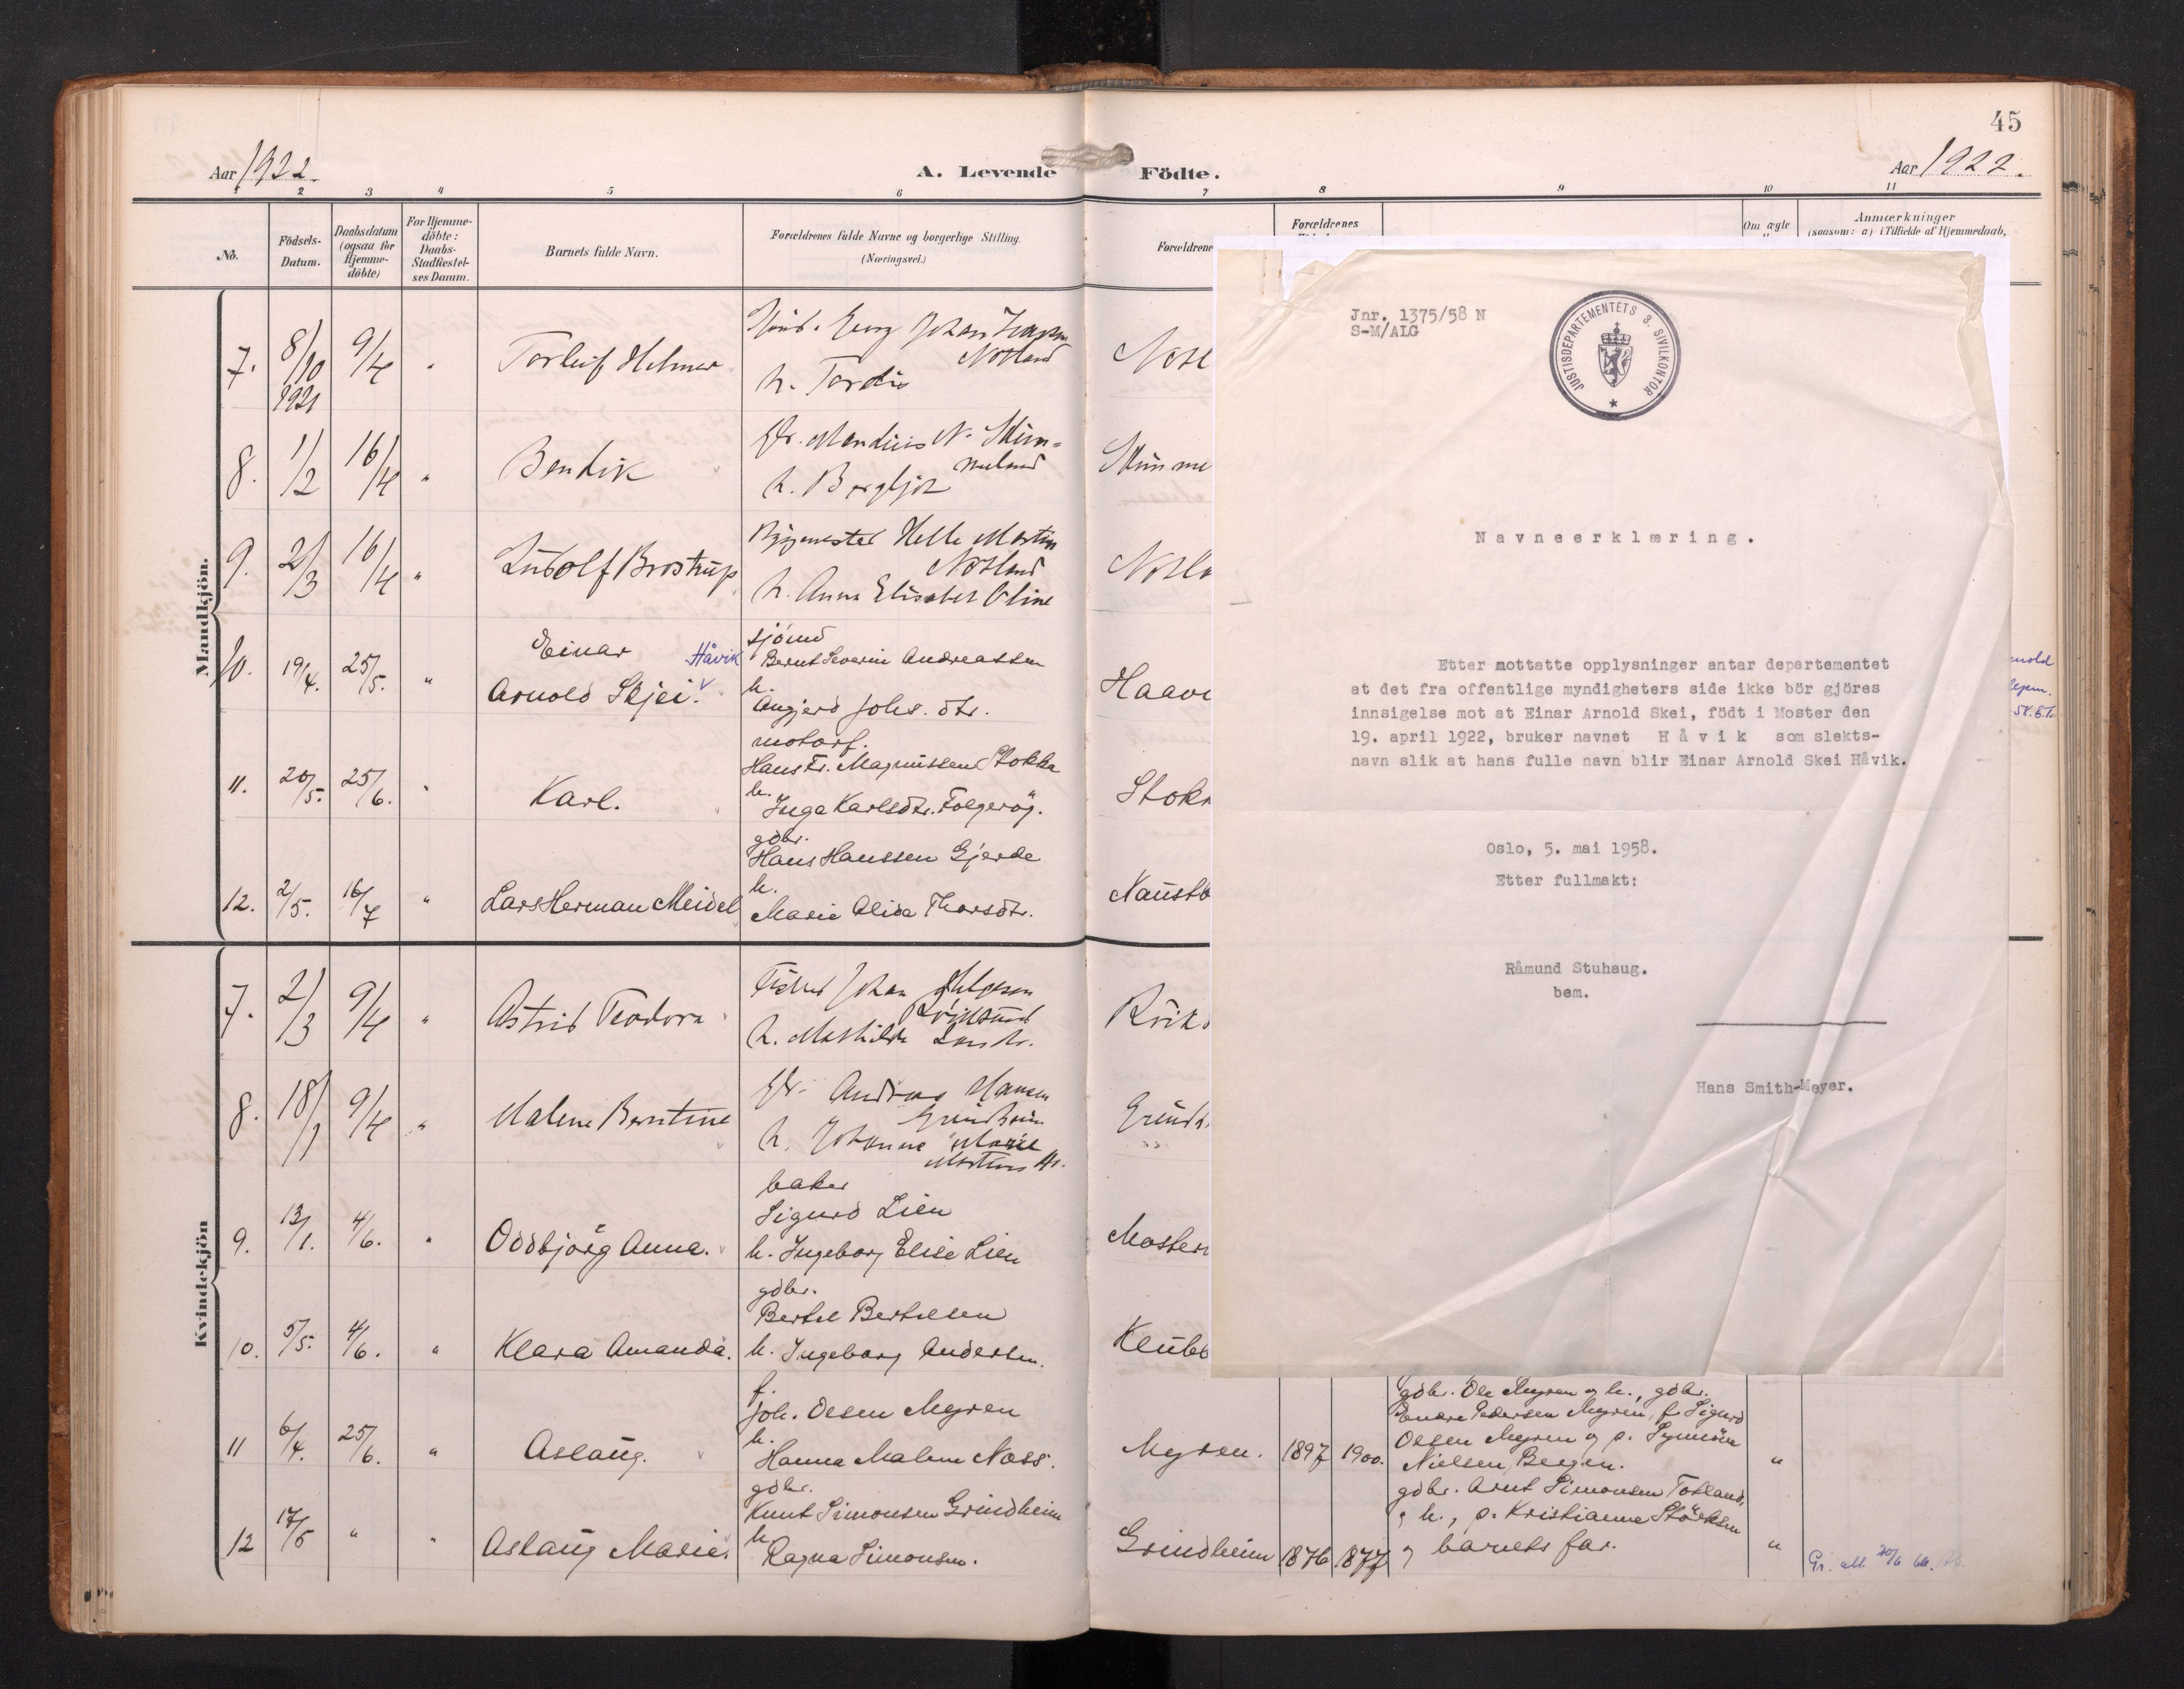 45
Aar 1922.
A. Levende Födte.
Aar 1922.
1 2 3 4 5 6 7 8 9 10 11
No.
Födsels-
Datum.
Daabsdatum
(ogsaa for
Hjemme-
döbte)
For Hjemme-
döbte:
Daabs-
Stadfæstel-
ses Datum.
Barnets fulde Navn.
Forældrenes fulde Navne og borgerlige Stilling.
(Næringsvei.)
Forældrene
Forældrenes
Om ægte
Anmærkninger
(saasom: a) i Tilfælde af Hjemmedaab,
Mandkjön.
7. 8/10 1921 9/4 "
Torleif Helmer
Johan
Nosland
h. Tordis
8. 1/2 16/4 "
Bendik
h. Bergljot
9. 2/3 16/4 "
Ludolf Brostrup
Helle Martin
Nosland
h. Anna Elisabet Oline
10. 19/4. 25/5. "
Einar Håvik
Arnold Skjei. v
sjömd
Bernt Severin Andreassen
h.
Johs. dtr.
Haavi
11. 20/5. 25/6. "
Karl.
motorf.
Hans Fr. Magnussen Stokka
h.
Inga Karlsdtr. Folgeröy.
12. 2/5. 16/7 "
Lars Herman Meidel
gdbr.
Hans Hanssen Gjerde
h.
Marie Alida Thorsdtr.
Nausto
Kvindekjön
7. 2/3 9/4 "
Astrid Teodora
Johan
h. Mathilde
8. 18/1 9/4 "
Malene Berntine
Andreas Hansen
Grindheim
h. Johanne Marie
9. 13/1. 4/6. "
Oddbjörg Anna.
baker
Sigurd Lien
h. Ingeborg Elise Lien
Moster
10. 5/5. 4/6. "
Klara Amanda.
gdbr.
Bertel Bertelsen
h. Ingeborg Andersen.
11 6/4. 25/6. "
Aslaug.
f.
Joh. Olsen Myren
h.
Hanna Malene Næss.
Myren. 1897 1900.
gdbr. Ole Myren og h., gdbr.
Pedersen Myren, f. Sigurd
Olsen Myren og p.
Nielsen, Bergen.
"
12 17/5 " "
Aslaug Marie.
gdbr.
Knut Simonsen Grindheim
h.
Ragna Simonsen.
Grindheim 1876 1877
gdbr. Arnt Simonsen Totland,
h., p. Kristianne
og barnets far.
"
Jnr. 1375/58 N
S-M/ALG
JUSTISDEPARTEMENTETS 3. SIVILKONTOR
Navneerklæring.
Etter mottatte opplysninger antar departementet
at det fra offentlige myndigheters side ikke bör gjöres
innsigelse mot at Einar Arnold Skei, födt i Moster den
19. april 1922, bruker navnet Håvik som slekts-
navn slik at hans fulle navn blir Einar Arnold Skei Håvik.
Oslo, 5. mai 1958.
Etter fullmakt:
Råmund Stuhaug.
bem.
Hans Smith-Meyer.